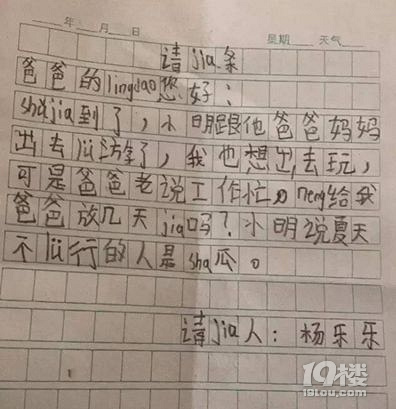 年 月 日 星期 天气
请jia条
爸爸的lingdao您好：
shǔjia到了，小明跟他爸爸妈妈
出去lü游了，我也想出去玩，
可是爸爸老说工作忙。neng给我
爸爸放几天jia吗？小明说夏天
不lü行的人是sha瓜。
请jia人：杨乐乐
19楼
19lou.com